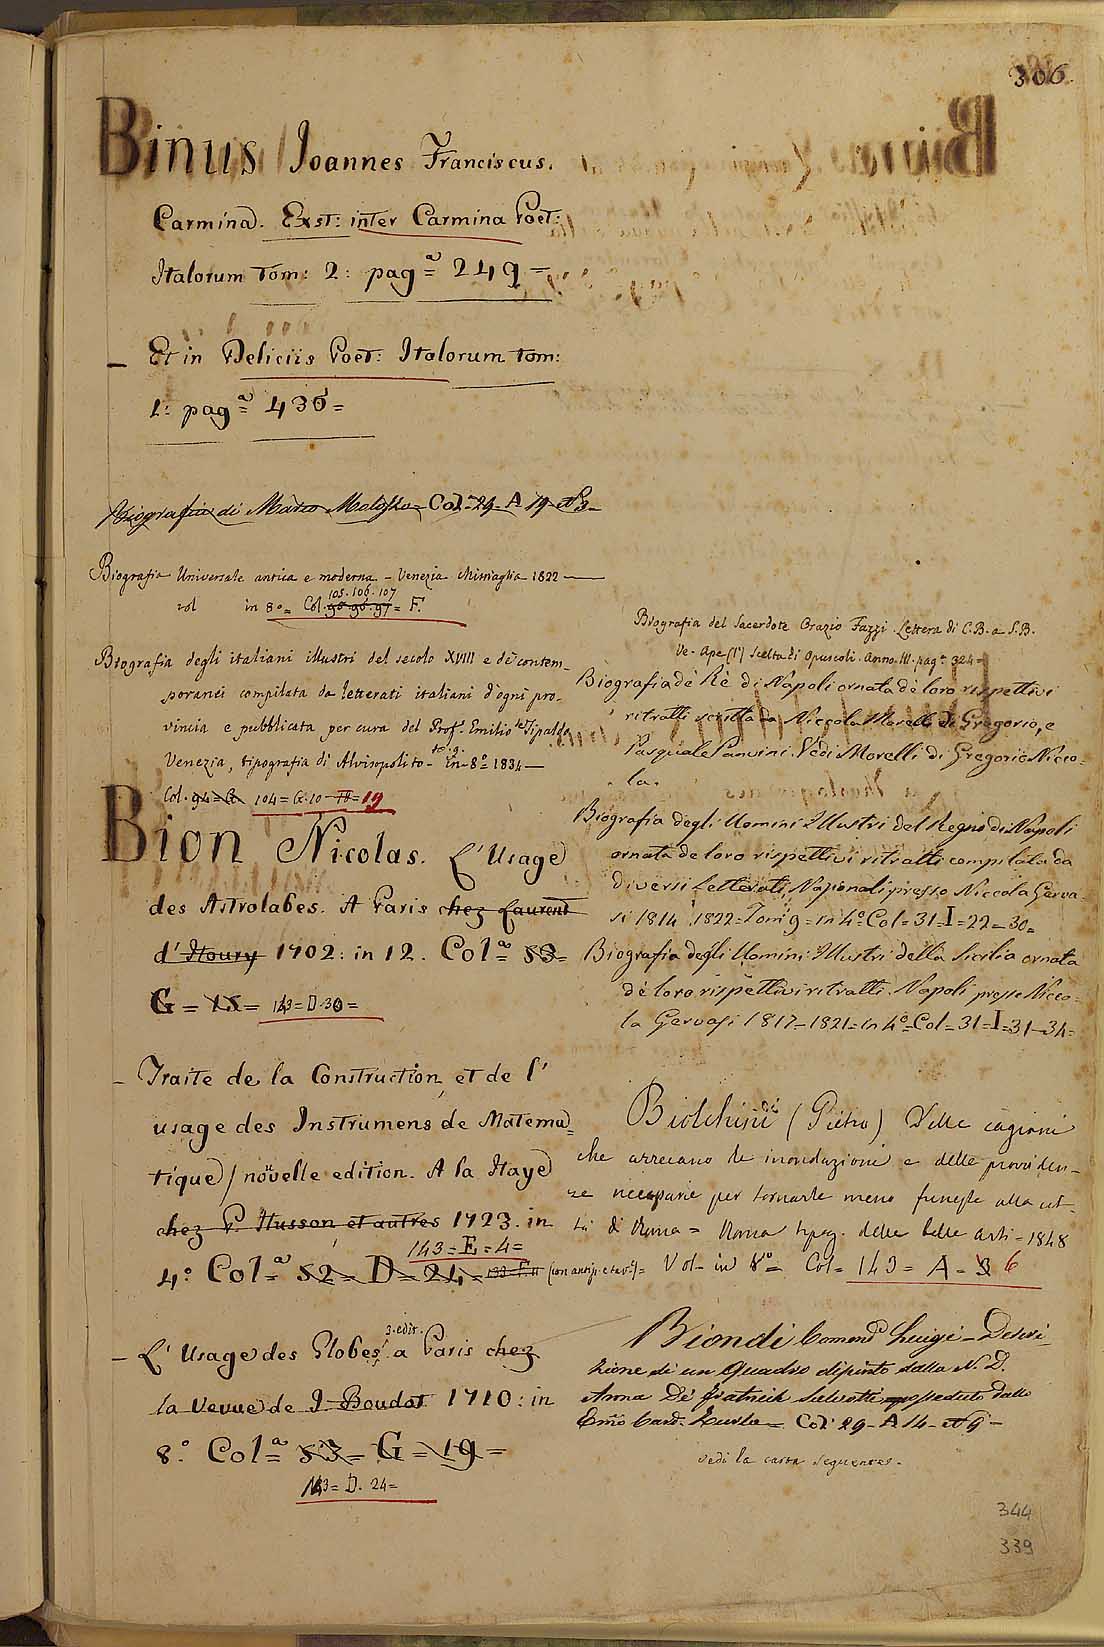 306.
Binus Joannes Franciscus.
Carmina. Exst: inter Carmina Poet:
Italorum Tom: 2: pagª= 249=
– Et in Deliciis Poet: Italorum tom:
1: pagª= 436=
Biografia di Marco Colª 29- A 19-
Biografia Universale antica e moderna – Venezia Missiaglia 1822 —
105. 106. 107
vol in 8º= Col. 95 96 97= F.
Biografia degli italiani illustri del secolo XVIII e de' contem-
poranei compilata da letterati italiani d'ogni pro-
vincia e pubblicata per cura del Prof. Emilio de Tipaldo
Venezia, tipografia di Alvisopolito – in-8º= 1834 —
Col. 94=G. 104=G.10–18=19
Bion Nicolas. L'Usage
des Astrolabes. A Paris chez Laurent
d'Houry 1702: in 12. Colª= 53=
G=15= 143=D.30=
– Traite de la Construction et de l'
usage des Instrumens de Matema=
tique/ novelle edition. A la Haye
chez P. Husson et autres 1723. in
143=E=4=
4º Colª= 52= D=24= (con antip. e tav.)=
3. edit.
– L'Usage des Globes a Paris chez
la Veuve de J. Boudot 1710: in
8º Colª= 53= G=19=
143=D. 24=
Biografia del Sacerdote Orazio Fazzi. Lettera di C.B. a S.B.
Ve. Ape (l') Scelta di Opuscoli. Anno. III. pagª 324=
Biografia de' Rè di Napoli ornata de' loro rispettivi
ritratti scritta da Niccola Morelli di Gregorio, e
Pasquale Panvini. Vedi Morelli di Gregorio Nicco-
la.
Biografia degli Uomini Illustri del Regno di Napoli
ornata de loro rispettivi ritratti compilata da
diversi Letterati Nazionali presso Niccola Gerva-
si 1814. 1822=Tomi 9=in 4º Col=31=I=22–30=
Biografia degli Uomini Illustri della Sicilia ornata
de loro rispettivi ritratti. Napoli presso Nicco-
la Gervasi 1817–1821=in 4º=Col=31=I=31–34=
(Pietro) Delle cagioni
che arrecano le inondazioni e delle providen-
ze necessarie per tornarle meno funeste alla cit-
tà di Roma = Roma tipog. delle belle arti – 1848
Vol- in 8º= Col= 143= A- 3 6
Biondi Comend. Luigi – Descri-
zione di un Quadro dipinto dalla N. D.
Anna De posseduto dallo
Emo Card. Zurla – Col: 29- A 14-
vedi la carta seguente.
344
339